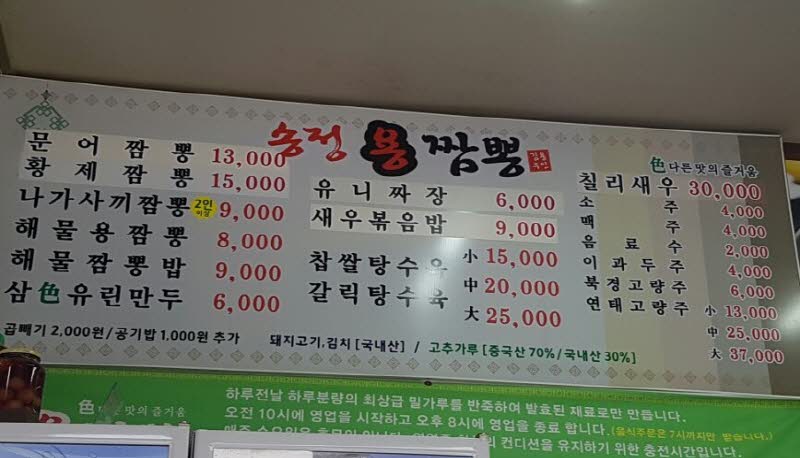 송정 용 짬뽕
문어짬뽕 13,000
황제짬뽕 15,000
나가사끼짬뽕 2인 이상 9,000
해물용짬뽕 8,000
해물짬뽕밥 9,000
삼色유린만두 6,000
곱빼기 2,000원/공기밥 1,000원 추가
유니짜장 6,000
새우볶음밥 9,000
찹쌀탕수육 小 15,000
갈릭탕수육 中 20,000
大 25,000
돼지고기,김치 [국내산] / 고추가루 [중국산 70%/국내산 30%]
色 다른 맛의 즐거움
칠리새우 30,000
소주 4,000
맥주 4,000
음료수 2,000
이과두주 4,000
북경고량주 6,000
연태고량주 小 13,000
中 25,000
大 37,000
色다른 맛의 즐거움
하루전날 하루분량의 최상급 밀가루를 반죽하여 발효된 재료로만 만듭니다.
오전 10시에 영업을 시작하고 오후 8시에 영업을 종료 합니다.(음식주문은 7시까지만 받습니다.)
컨디션을 유지하기 위한 충전시간입니다.